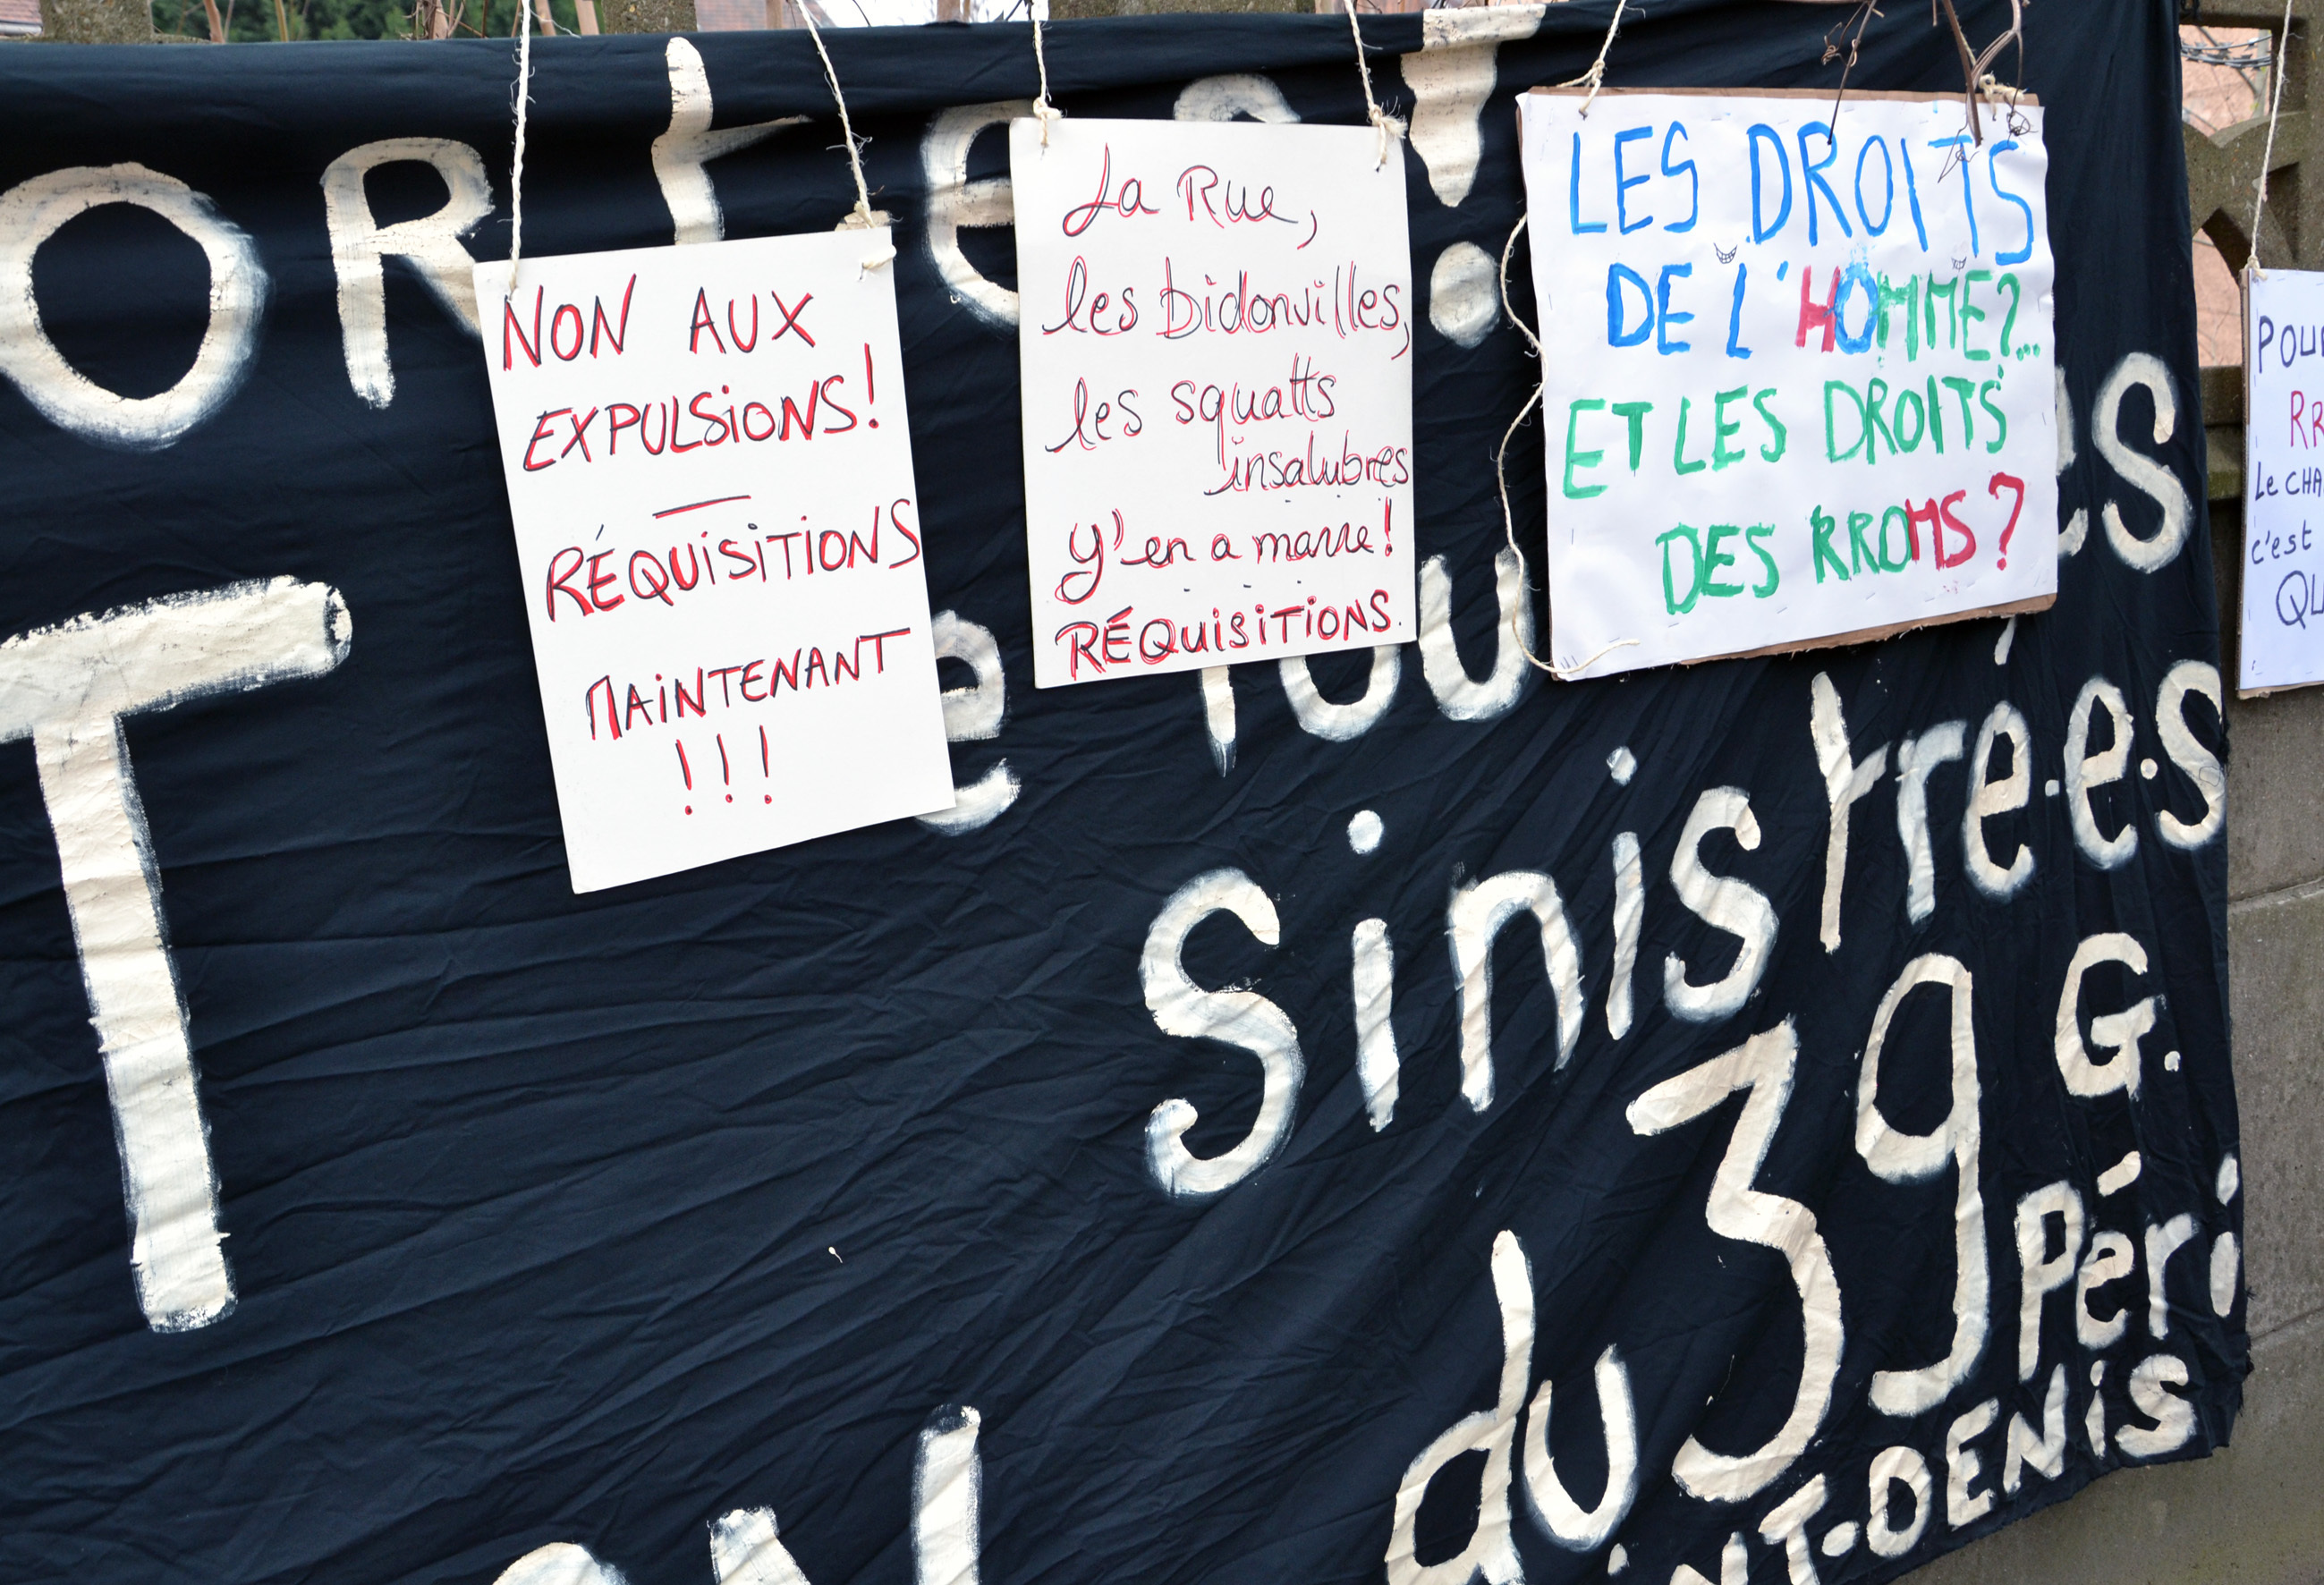 ORTes!
NON AUX
EXPULSiONS!
RÉQUiSiTiONS
MAiNTENANT
!!!
La Rue,
les bidonvilles,
les squatts
insalubres
y'en a marre!
RÉQUiSiTiONS.
LES DROITS
DE L'HOMME?...
ET LES DROITS
DES RROMS?
POUR
RR
Le CHA
c'est
QU
T
Sinistré·e·s
du 39 G.
Péri
NT-DENiS